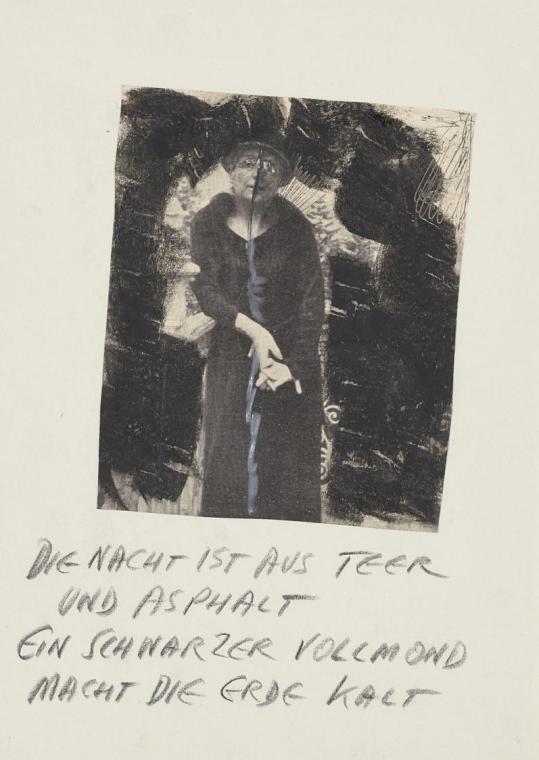 DIE NACHT IST AUS TEER
UND ASPHALT
EIN SCHWARZER VOLLMOND
MACHT DIE ERDE KALT